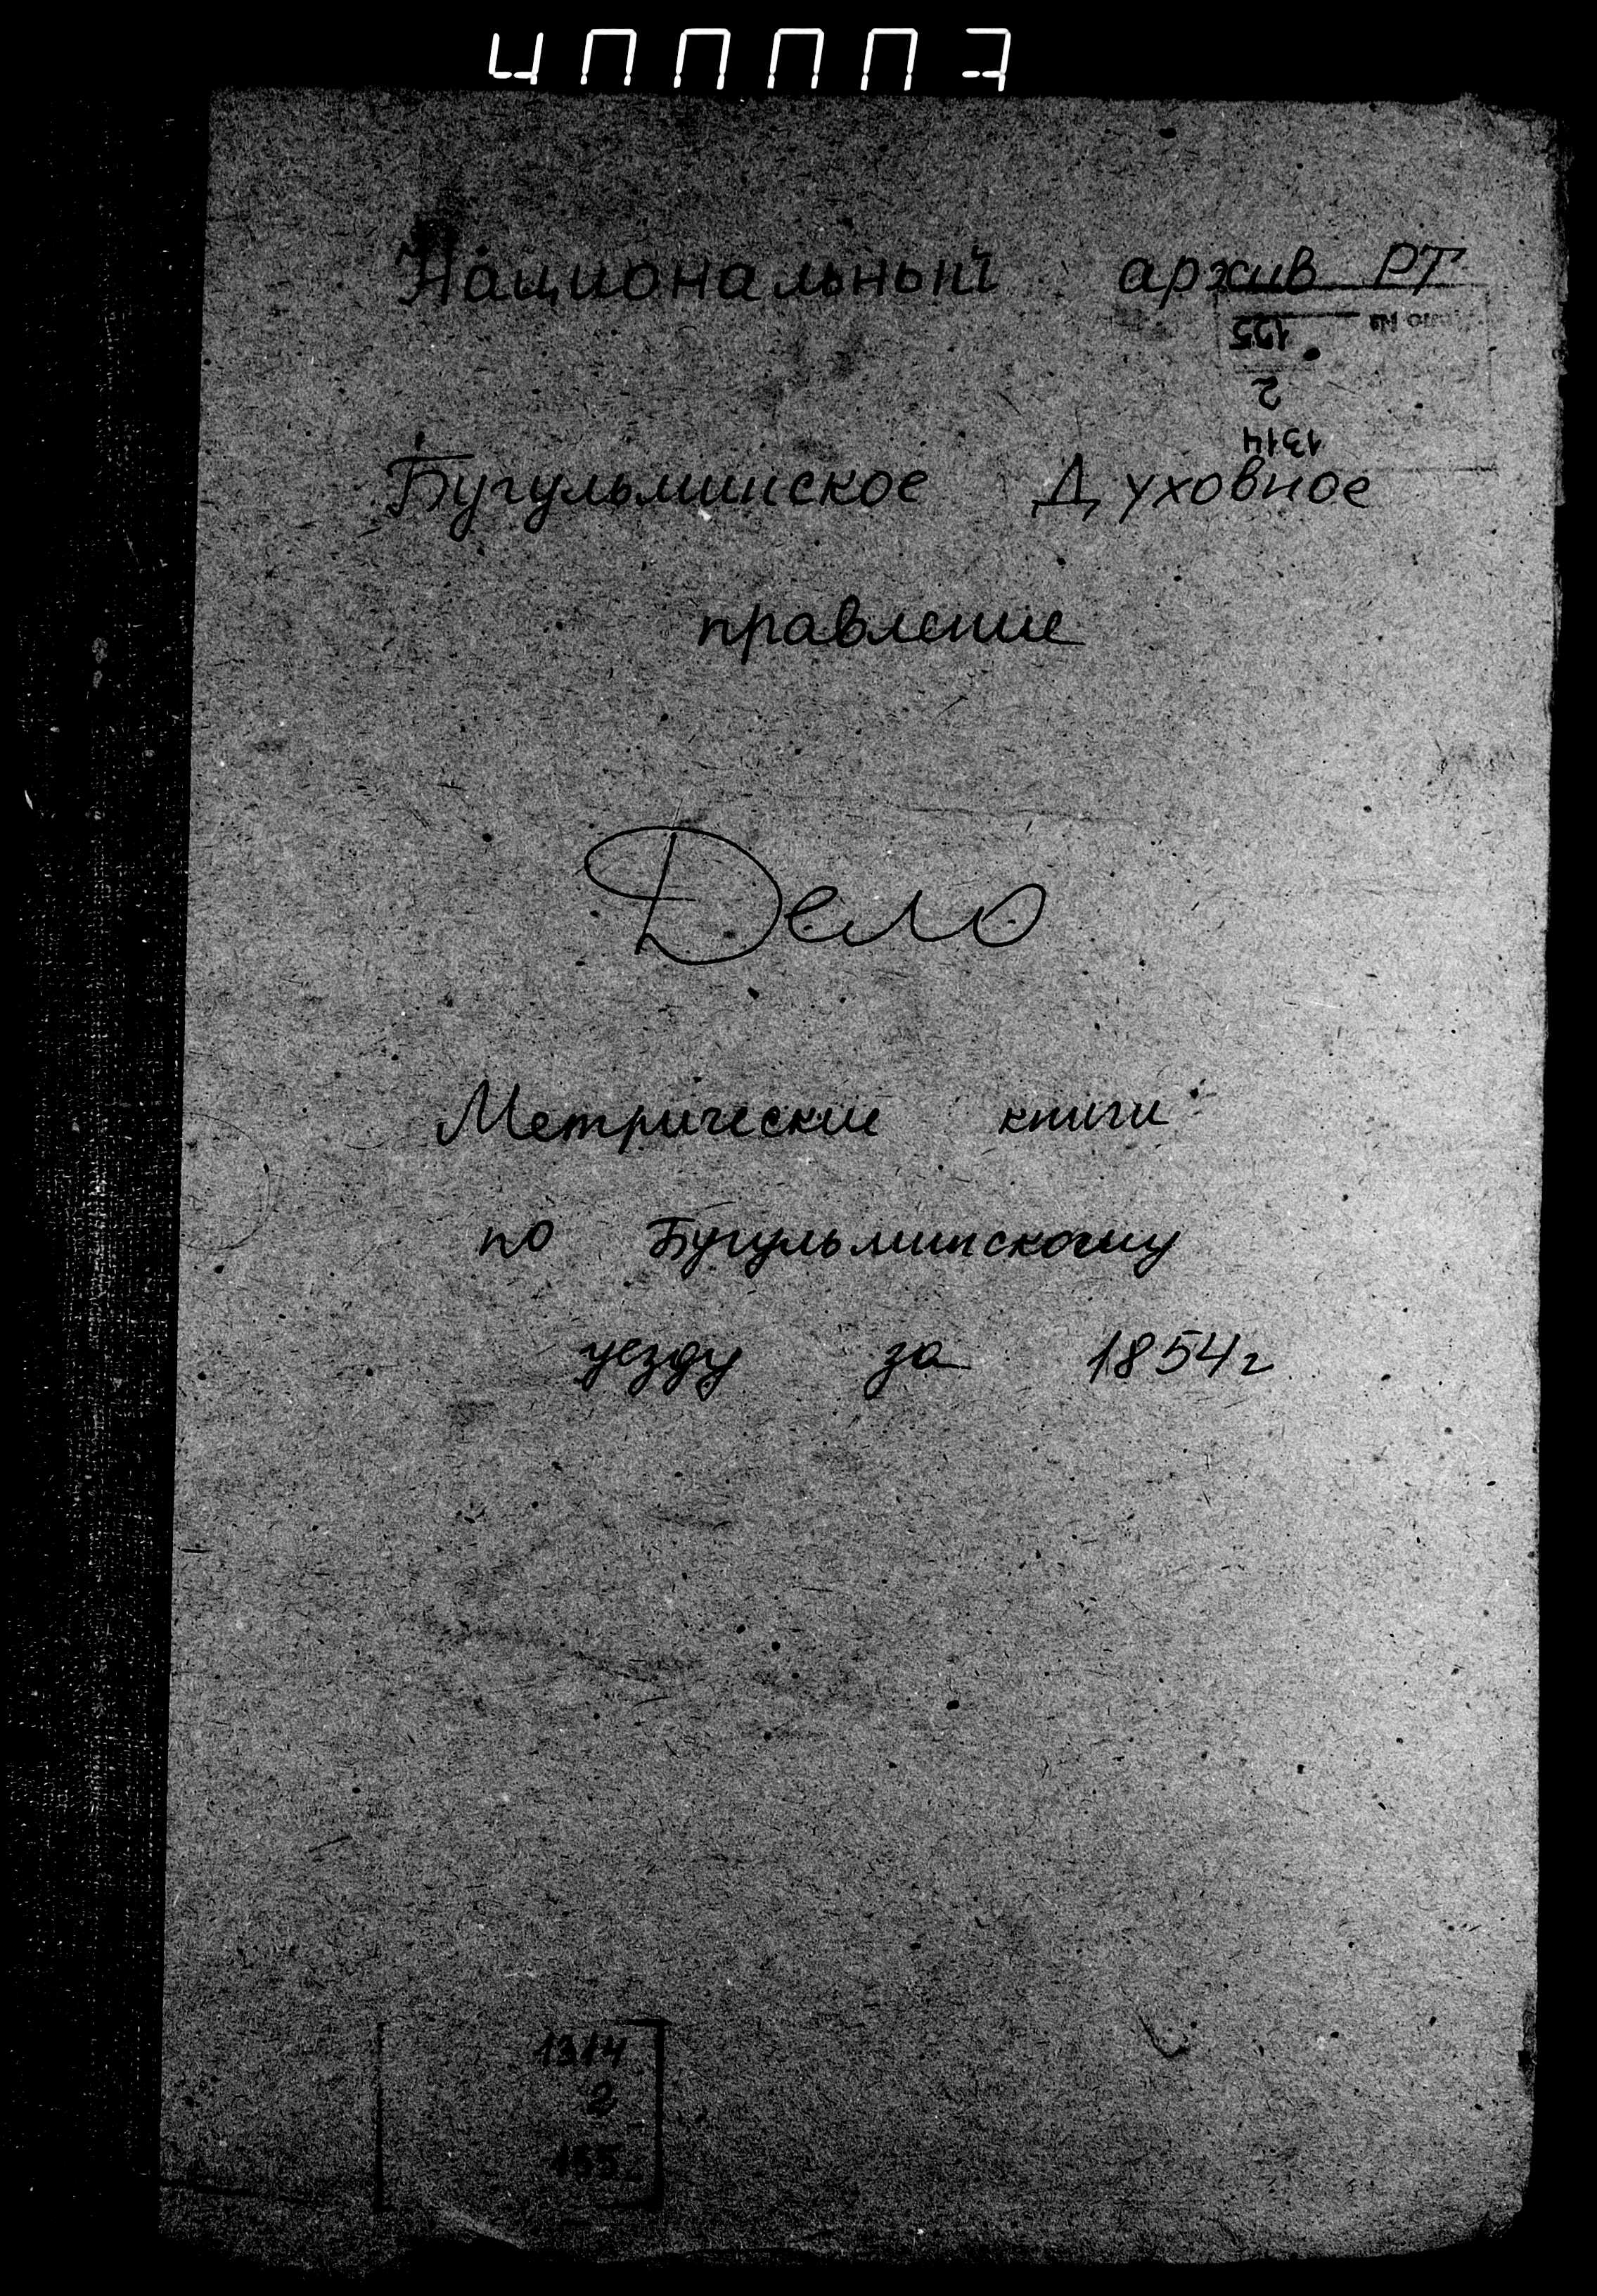 Национальный архив РТ
Дело №
195
2
1314
Бугульминское Духовное
правление
Дело
Метрические книги
по Бугульминскому
уезду за 1854г
1314
2